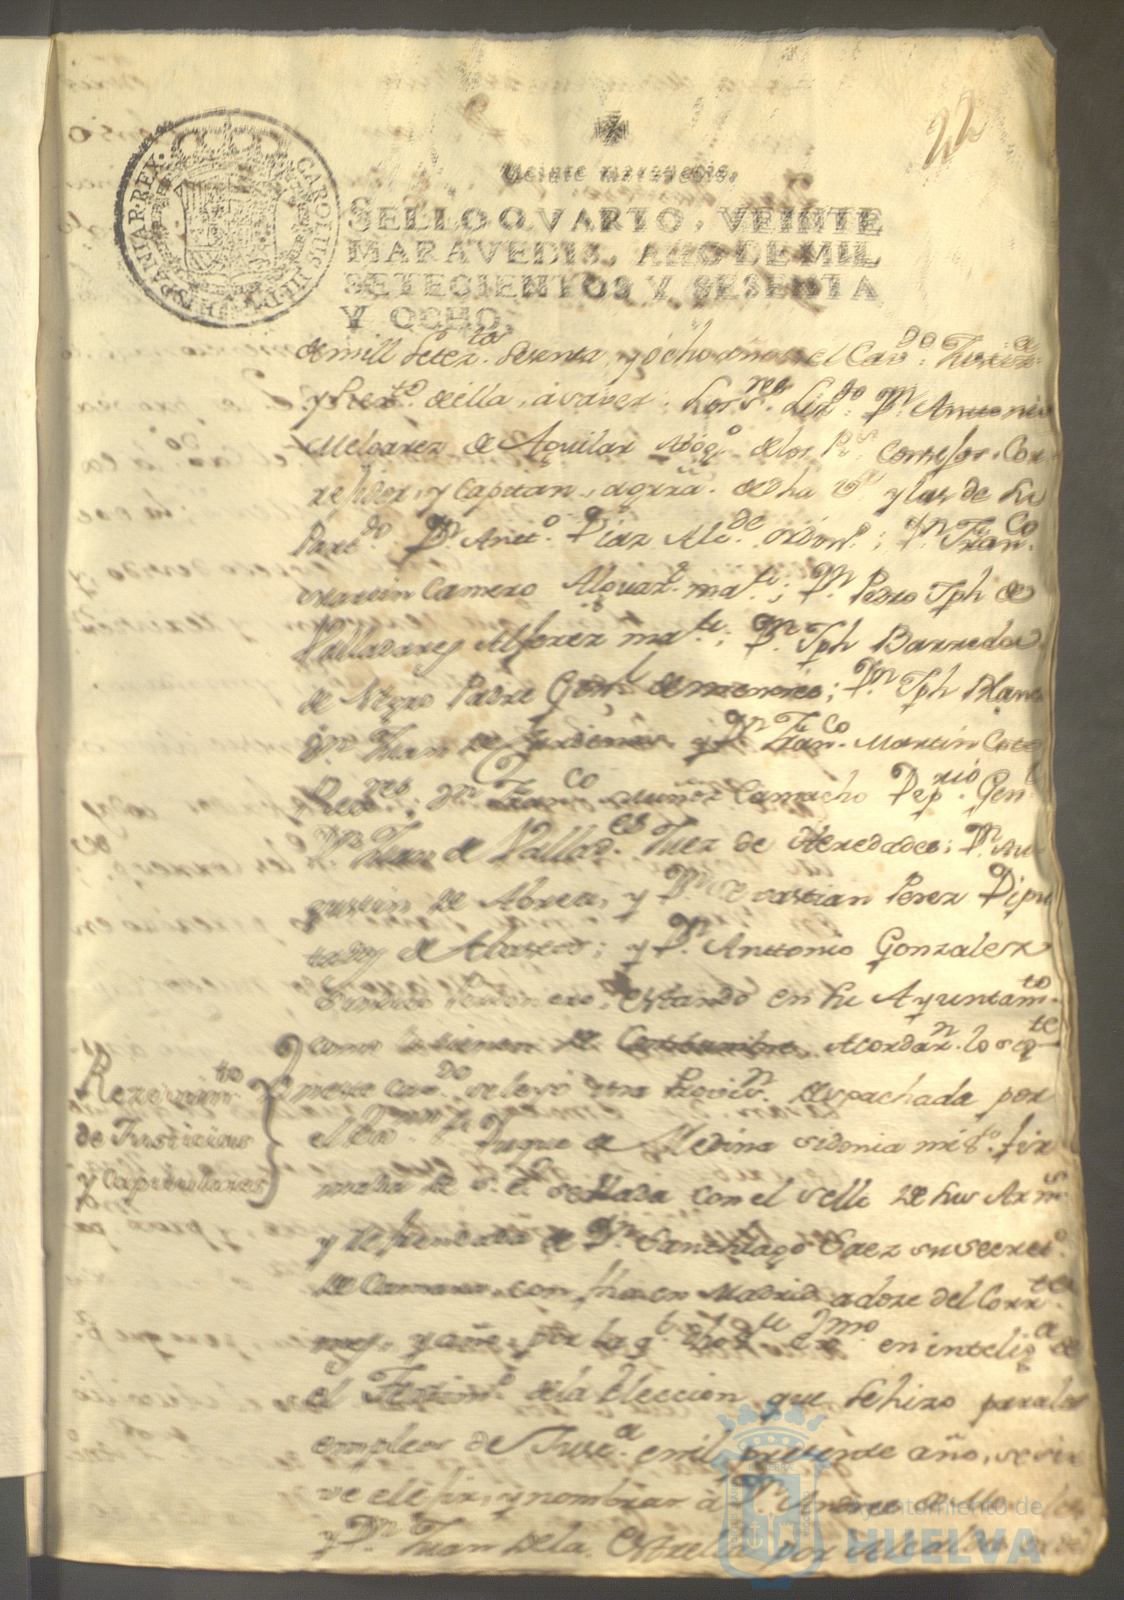 22
CAROLUS III D G HISPANIAR REX
Veinte maravedis.
SELLO QVARTO, VEINTE
MARAVEDIS, AÑO DE MIL
SETECIENTOS Y SESENTA
Y OCHO.
de mill setez.tos sesenta, y ocho años el Cav.do Justiz.a
y Rex.to de ella, a saver: Los S.res Liz.do D.n Anttonio
Melgarez de Aguilar Abog.o de los R.s Consejos, Cor-
rejidor, y Capitan, a grra. de dha V.a y las de su
Part.do D.n Antt.o Diaz Alc.de ordin.o; D.n Fran.co
Martin Camero Alguaz.l ma.r; D.n Pedro Jph de
Valladares Alferez ma.r; D.n Jph Barreda
de Negro Padre Gen.l de menores; D.n Jph Blanco
D.n Juan de Cardenas y D.n Fran.co Martin Coto
Rex.res; D.n Fran.co Muñoz Camacho Dep.rio Gen.l
D.n Juan de Vallad.es Juez de Heredades; D.n Au-
gustin de Abreu, y D.n Sevastian Perez Dipu
tados de Abastos; y D.n Anttonio Gonzalez
Sindico Personero; estando en su Ayuntam.to
como lo tienen de Costumbre, Acordar.n lo sig.te
Rezevim.to
de Justicias
y Capitulares
En este Cav.do se leyó una Provis.n despachada por
el Duque de Medina sidonia mi s.r fir
mada de S. E. sellada con el sello de sus Arm.s
y refrendada de D.n Santhiago Saez su secret.o
de Camara, con fha en Madrid a doze del Corr.te
mes, y año, por la q.l en intelig.a de
el Testim.o de la Eleccion que se hizo para los
empleos de Just.a en el presente año, se sir
ve elejir, y nombrar à D.n Andres de
y D.n Juan de la Estrella por Alcaldes
Ayuntamiento de
HUELVA